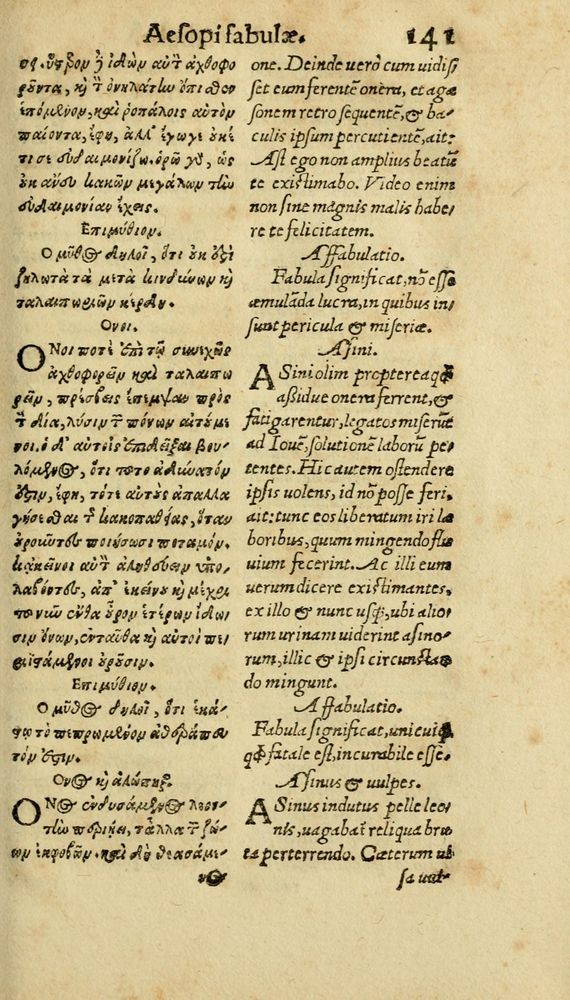 Aesopi fabulæ. 141
ος. ὕστερον δὲ ἰδὼν αὐτὸν ἀχθοφο
ροῦντα, καὶ τὸν ὀνηλάτην ὄπιθεν
ἑπόμενον, καὶ ῥοπάλοις αὐτὸν
παίοντα, ἔφη, ἀλλ' ἔγωγε οὐκέ
τι σε εὐδαιμονίζω. ὁρῶ γὰρ, ὡς
οὐκ ἄνευ κακῶν μεγάλων τὴν
εὐδαιμονίαν ἔχεις.
Επιμύθιον.
Ο μῦθος δηλοῖ, ὅτι οὐκ ἔστι
ζηλωτὰ τὰ μετὰ κινδύνων καὶ
ταλαιπωριῶν κέρδη.
Ονοι.
ΟΝοι ποτὲ ἐπὶ τῷ συνεχῶς
ἀχθοφορεῖν καὶ ταλαιπω
ρεῖν, πρέσβεις ἔπεμψαν πρὸς
τὸν δία, λύσιν τῶν πόνων αἰτούμε
νοι. ὁ δ' αὐτοῖς ἐπιδεῖξαι βου-
λόμενος, ὅτι τοῦτο ἀδύνατόν
ἐστιν, ἔφη, τότε αὐτοὺς ἀπαλλα
γήσεσθαι τῆς κακοπαθείας, ὅταν
οὐροῦντες ποιήσωσι ποταμόν.
κἀκεῖνοι αὐτὸν ἀληθεύειν ὑπο-
λαβόντες, ἀπ' ἐκείνου καὶ μέχρι
τοῦ νῦν ἔνθα οὖρον ἑτέρων ἴδω-
σιν ὄνων, ἐνταῦθα καὶ αὐτοὶ πε-
ριϊστάμενοι οὐροῦσιν.
Επιμύθιον.
Ο μῦθος δηλοῖ, ὅτι ἑκά-
στῳ τὸ πεπρωμένον ἀθεράπευ
τόν ἐστιν.
Ονος καὶ ἀλώπηξ.
ΟΝος ἐνδυσάμενος λεον-
τῆν περιῄει, τἆλλα τῶν ζώ-
ων ἐκφοβῶν. καὶ δὴ θεασάμε-
νος
one. Deinde uerò cum uidis,
set eum ferentē onera, et aga
sonem retro sequentē, & ba,
culis ipsum percutientē, ait:
Ast ego non amplius beatū
te existimabo. Video enim
non sine magnis malis habe,
re te felicitatem.
Affabulatio.
Fabula significat, nō esse
æmulāda lucra, in quibus in,
sunt pericula & miseriæ.
Asini.
ASini olim propterea qđ
aßidue onera ferrent, &
fatigarentur, legatos miserūt
ad Iouē, solutionē laborū pe,
tentes. Hic autem ostendere
ipsis uolens, id nō posse feri,
ait: tunc eos liberatum iri la
boribus, quum mingendo flu
uium fecerint. Ac illi eum
uerum dicere existimantes,
ex illo & nunc usq;, ubi alio,
rum urinam uiderint asino,
rum, illic & ipsi circunstan
do mingunt.
Affabulatio.
Fabula significat, unicuiq;
qđ fatale est, incurabile esse.
Asinus & uulpes.
ASinus indutus pelle leo,
nis, uagabat reliqua bru
ta perterrendo. Cæterum ui
sa uul-